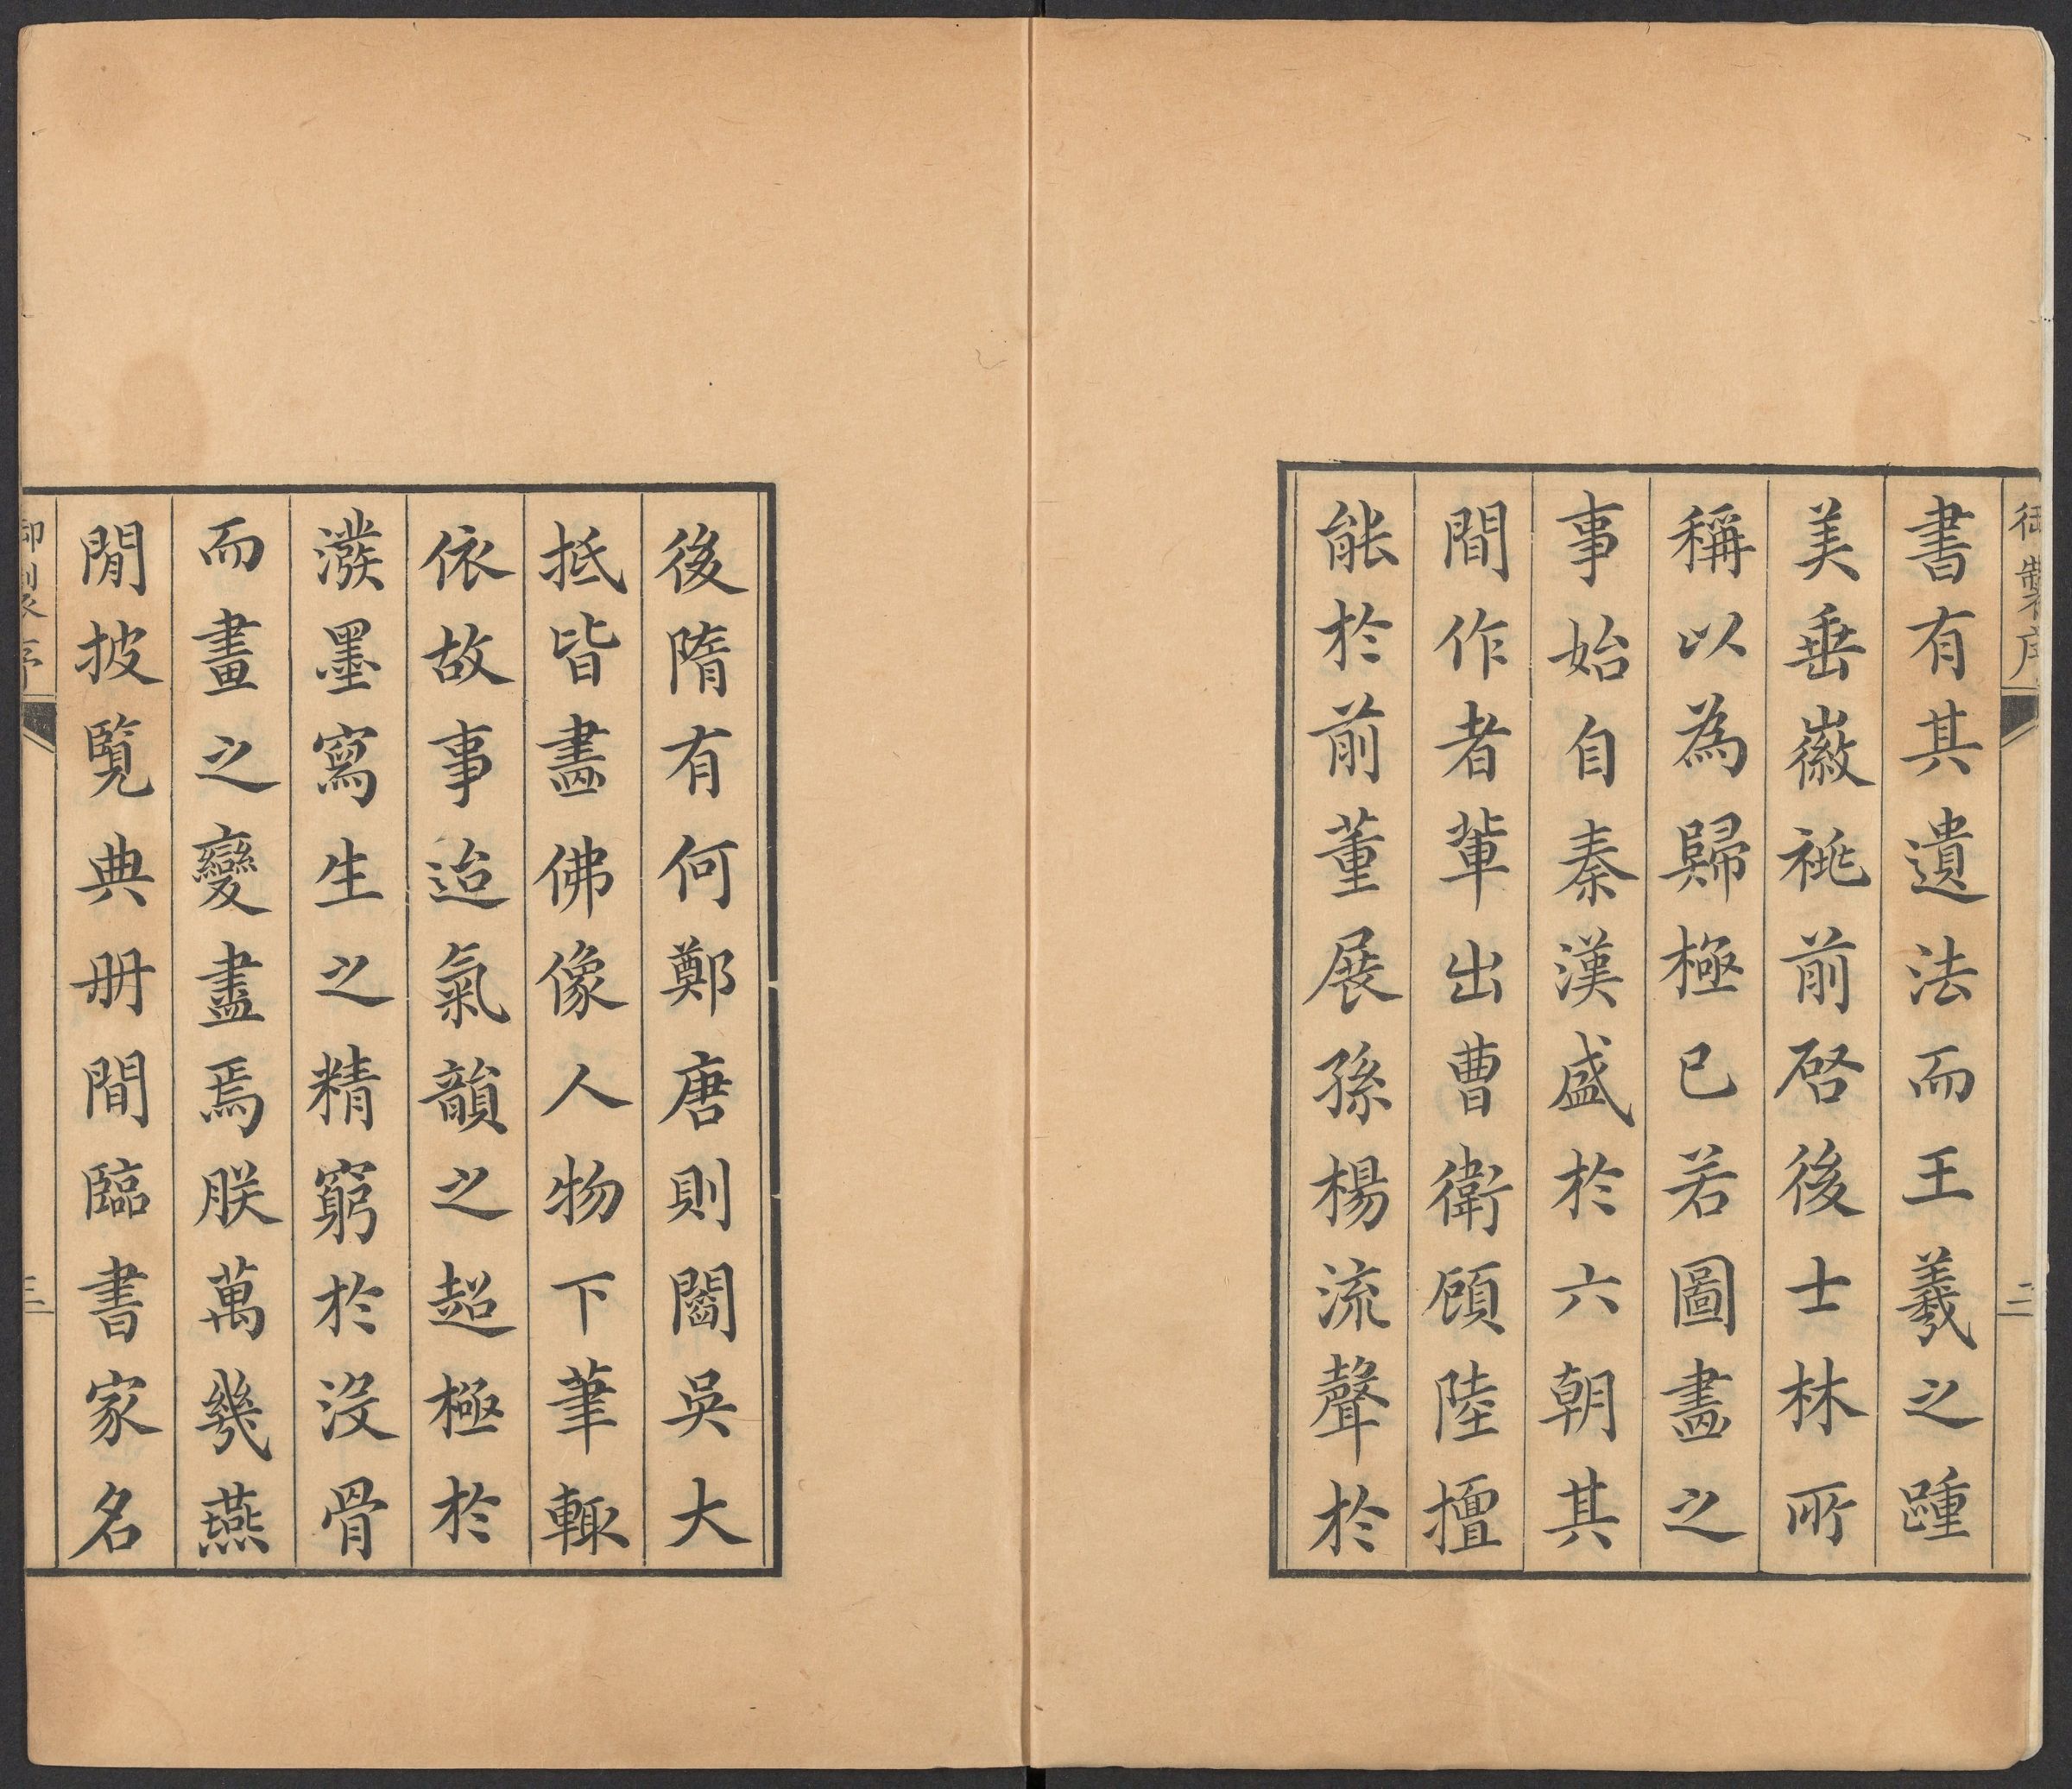 御製序
二
書有其遺法而王羲之踵
美垂徽祧前啓後士林所
稱以為歸極已若圖畫之
事始自秦漢盛於六朝其
間作者輩出曹衛顧陸擅
能於前董展孫楊流聲於
後隋有何鄭唐則閻吳大
抵皆畫佛像人物下筆輒
依故事迨氣韻之超極於
潑墨寫生之精窮於沒骨
而畫之變盡焉朕萬幾燕
閒披覽典冊間臨書家名
御製序
三